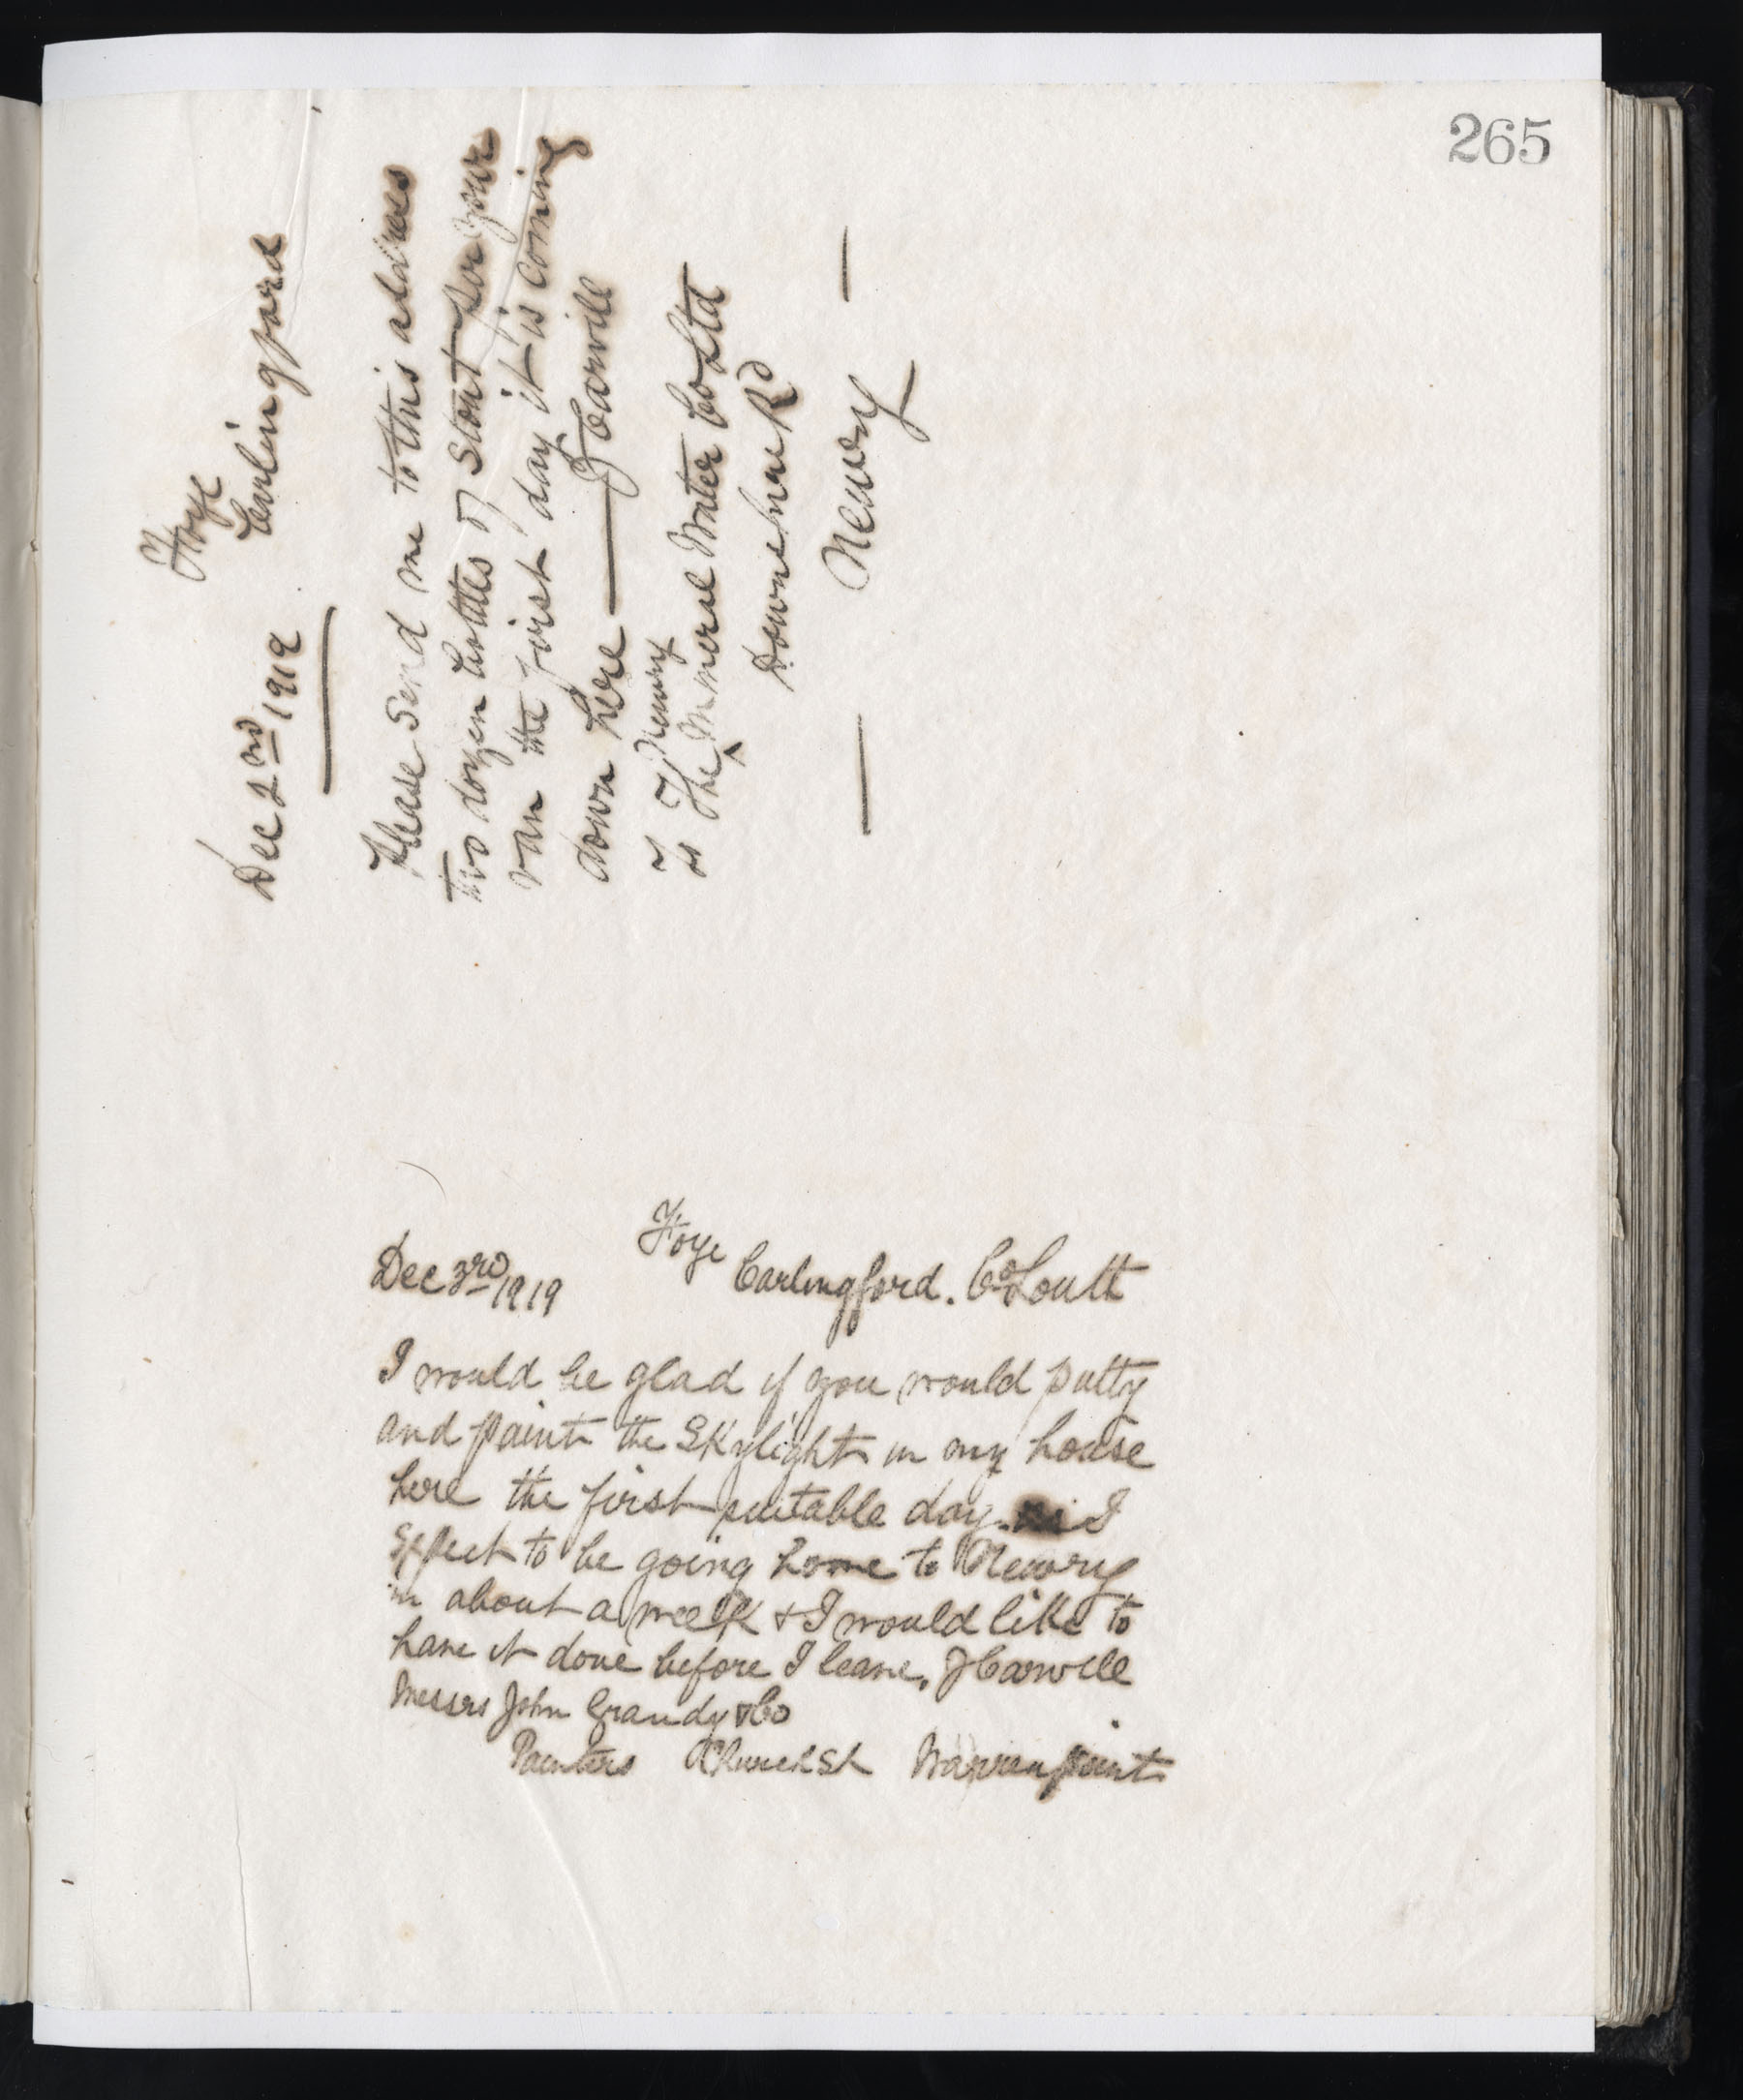 265
Foye
Dec 2nd 1919 Carlingford
Please send me to this address
two dozen bottles of Stout per your
van the first day it is coming
down here — J Carvill
To Newry
To The ^ Mineral Water Co Ltd
Downshire Rd
— Newry —
Foye
Dec 3rd 1919 Carlingford. Co Louth
I would be glad if you would putty
and paint the Skylight in my house
here the first suitable day. I
Expect to be going home to Newry
in about a week & I would like to
have it done before I leave, J Carvill
Messrs John Grandy & Co
Painters Church St Warrenpoint